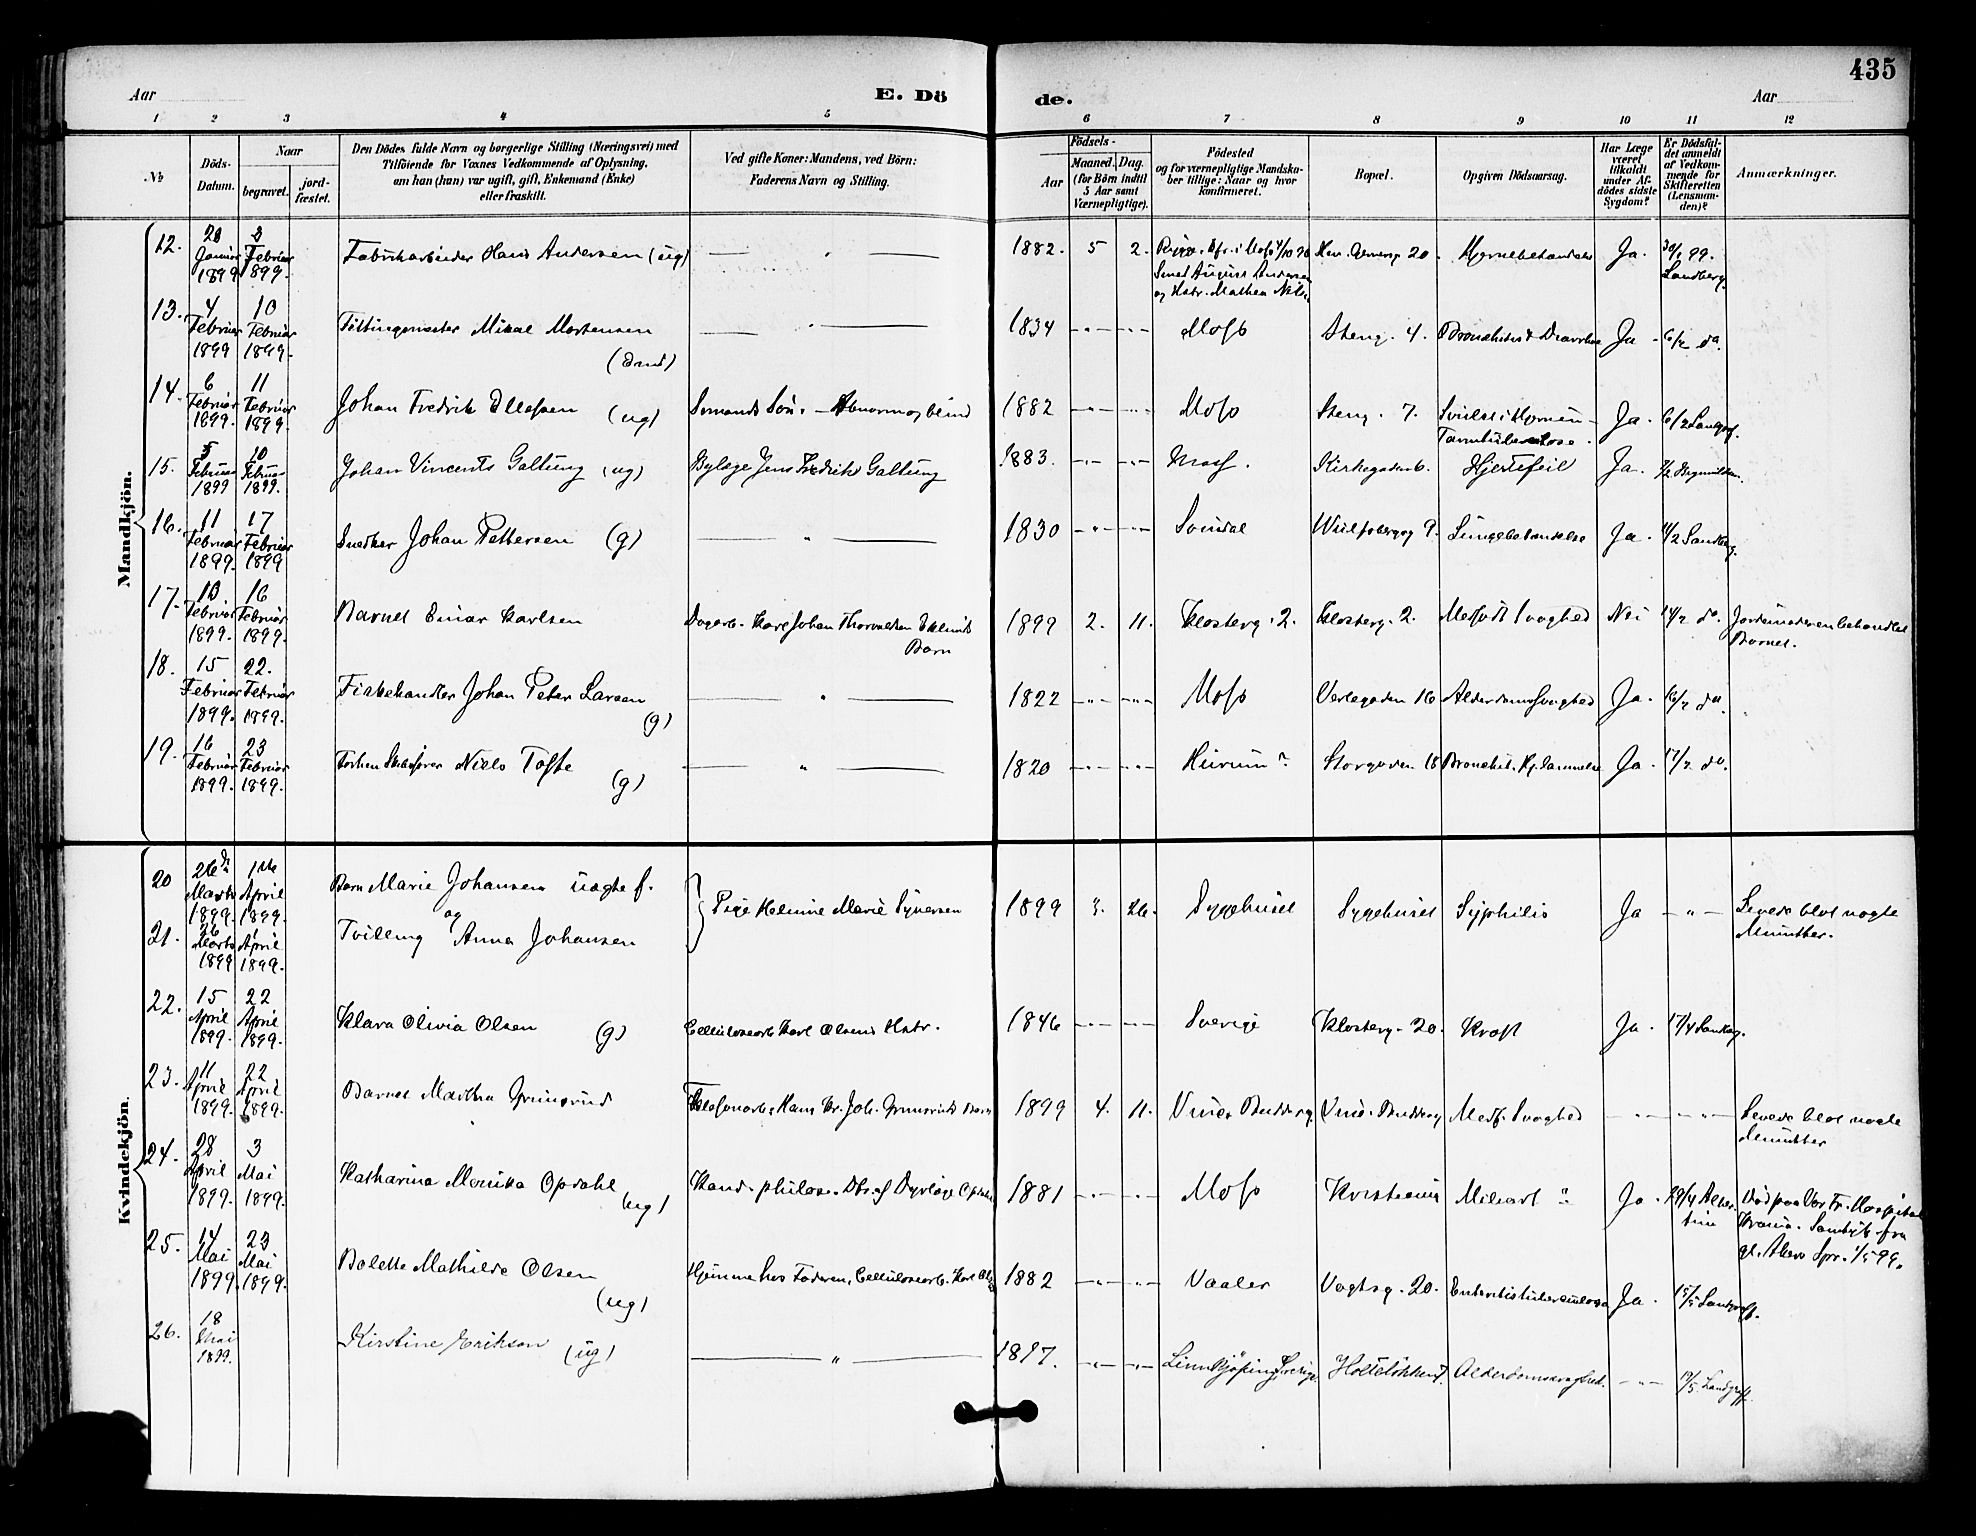 435
Aar
E. Dö
de.
Aar
1 2 3 4 5 6 7 8 9 10 11 12
№
Döds-Datum.
Naar
begravet.
jord-fæstet.
Den Dödes fulde Navn og borgerlige Stilling (Næringsvei) med
Tilföiende for Voxnes Vedkommende af Oplysning,
om han (hun) var ugift, gift, Enkemand (Enke)
eller fraskilt.
Ved gifte Koner: Mandens, ved Börn:
Faderens Navn og Stilling.
Födsels-
Aar
Maaned. Dag.
(for Börn indtil
5 Aar samt
Værnepligtige).
Födested
og for værnepligtige Mandska-
ber tillige: Naar og hvor
konfirmeret.
Bopæl.
Opgiven Dödsaarsag.
Har Læge
været
tilkaldt
under Af-
dödes sidste
Sygdom?
Er Dödsfal-
det anmeldt
af Vedkom-
mende for
Skifteretten
(Lensman-
den)?
Anmærkninger.
Mandkjön.
12. 28 Januar 1899 Februar 1899. Fabrikarbeider Hans Andersen (ug) — " — 1882. 5 2. Ja.
Smed August Andersen
og Hstr. Mathea
13. 4 Februar 1899 10 Februar 1899. Mortensen — " — 1834 — " — Moss Steng. 4. Ja - 6/2 do.
14. 6 Februar 1899. 11 Februar 1899. Johan Fredrik Ellefsen (ug) Sömands Sön. — Abnorm og blind 1882 — " — Moss Steng. 7. Ja. 6/2
15. 5 Februar 1899 10 Februar 1899. Johan Vincents Galtung (ug) Byfoge Jens Fredrik Galtung 1883. — " — Moss. Kirkegaden 6. Hjertefeil Ja.
16. 11 Februar 1899. 17 Februar 1899 Snedker Johan Pettersen (g) — " — 1830 — " — Wulfsbergsg 9. Lungebetændelse Ja. Sandberg.
17. 13 Februar 1899. 16 Februar 1899. Barnet Einar Karlsen Dagarb. Karl Johan Thorvaldsen Eklunds Barn 1899 2. 11. Klosterg. 2. Klosterg. 2. Medfödt Svaghed Nei 14/2 do. Jordemoderen behandlet Barnet.
18. 15 Februar 1899. 22. Februar 1899. Fiskehandler Johan Peter Larsen (g) — " — 1822 — " — Moss Verlegaden 16 Alderdomssvaghed Ja. 16/2 do.
19. 16 Februar 1899. 23 Februar 1899. Forhen Skibsförer Niels Tofte (g) — " — 1820 — " — Hurum? Storgaden 18 Ja. 17/2 do.
Kvindekjön.
20 26de Marts 1899. 1ste April 1899. Barn Marie Johansen uægte f. Pige Helmine Marie Syversen 1899 3. 26. Sygehuset Sygehuset Syphilis Ja — " — Levede blot nogle Minutter.
og
21. 26 Marts 1899 1 April 1899. Tvilling Anna Johansen
22. 15 April 1899. 22 April 1899. Klara Olivia Olsen (g) Cellulosearb. Karl Olsens Hstr. 1846 — " — Sverige Klosterg. 20. Kræft Ja. 17/4
23. 11 April 1899. 22 April 1899. Barnet Martha Grimsrud Telefonarb. Hans Kr. Joh. Grimsruds Barn 1899 4. 11. Medf. Svaghed — " — — " — Levede blot nogle Minutter
24. 28 April 1899. 3 Mai 1899. Katharina Monika Opdahl (ug) Kand. philos. Dtr. af Dyrlæge Opdahl 1881 — " — Moss Kristiania Ja. 29/4 Död paa Vor Fr. Hospital
Krania.
gl. Akers Spr. 1/5 99.
25. 14 Mai 1899. 23 Mai 1899. Bolette Mathilde Olsen (ug) Hjemme hos Faderen, Cellulosearb. Karl Olsen 1882 — " — Vaaler Vogtsg. 20. Ja. 15/5
26. 18 Mai 1899. Kirstine Erikson (ug) — " — — " — Linnkjöping Sverige. Alderdomssvaghed. — " — 19/5 Landgraff.